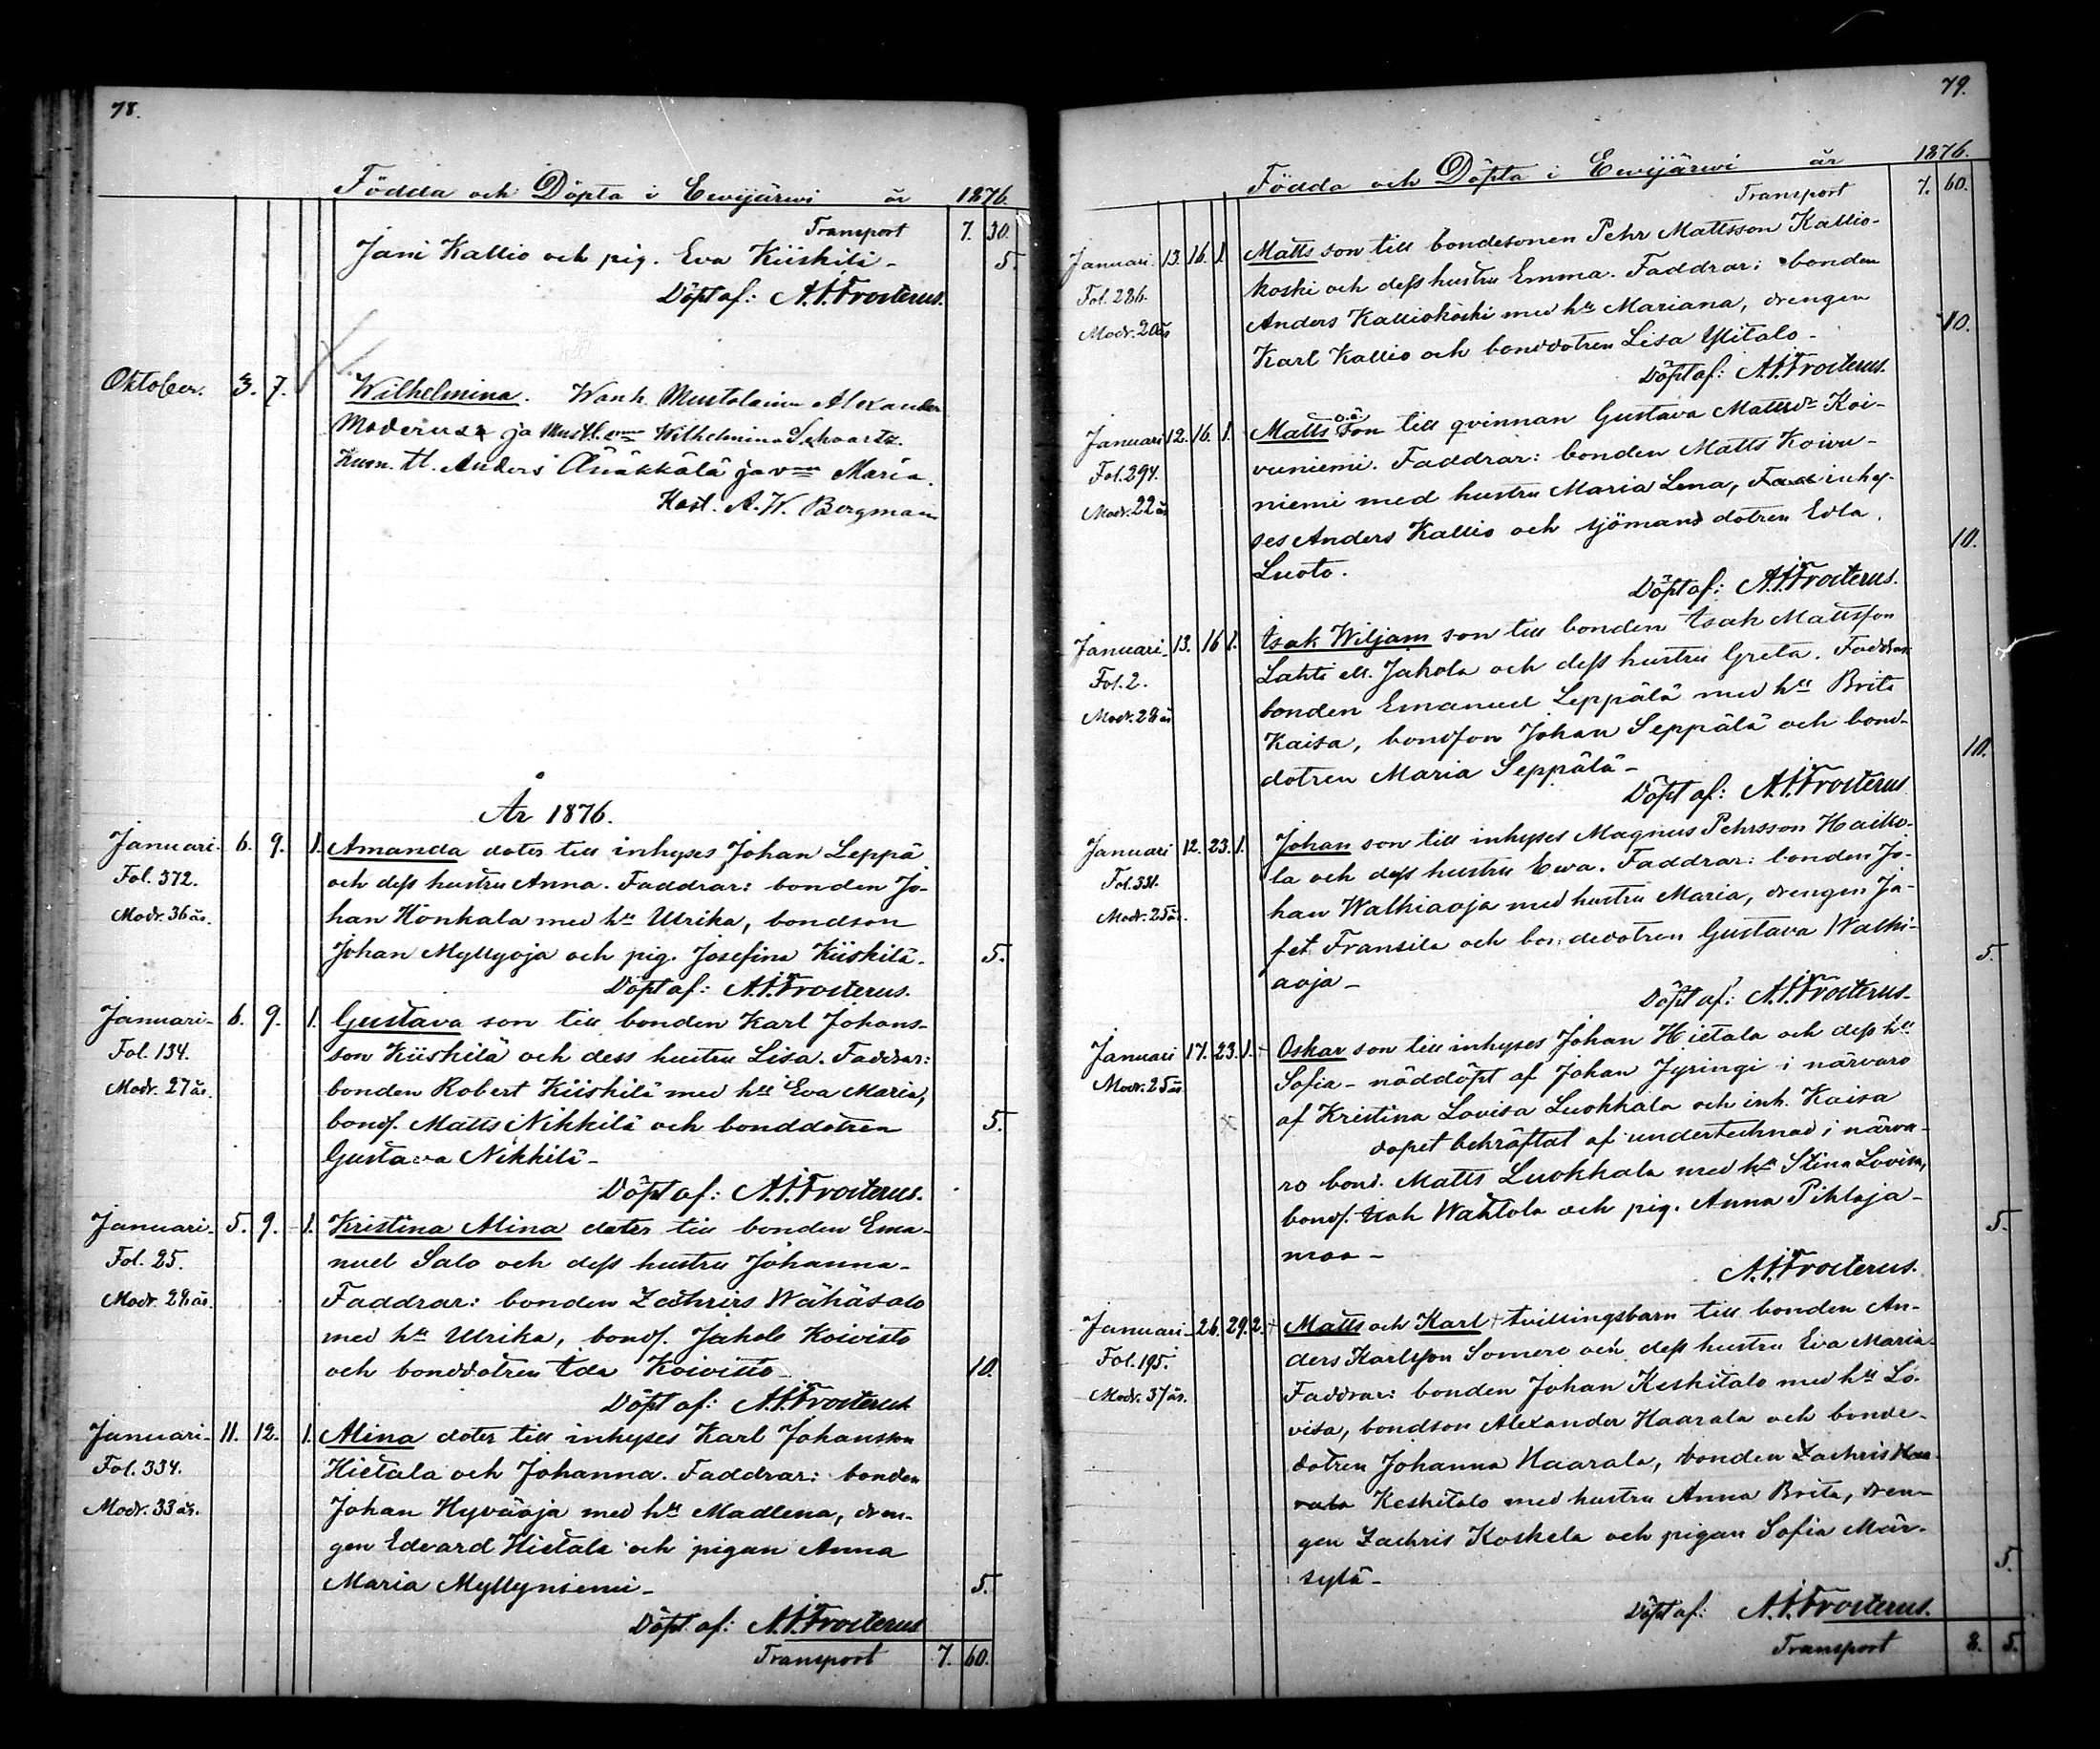 78.
Födda och Döpta i Ewijärwi år 1876.
Transport 7. 30.
Jani Kallio och pig. Eva Kiiskilä - 5.
Döpt af: A.I. Frosterus.
Oktober. 3. 7. Wilhelmina. Wanh. Mustalainen Alexander
ja Wilhelmina Schvartz.
Kum. tl. Anders ja vmo Maria.
Kast. A. W. Bergman
År 1876.
Januari. 6. 9. 1. Amanda doter till inhyses Johan Leppä
Fol. 372. och dess hustru Anna. Faddrar: bonden Jo-
Modr. 36 år. han Honkala med hu Ulrika, bondson
Johan Myllyoja och pig. Josefina Kiiskilä. 5.
Döpt af: A.I. Frosterus.
Januari- 6. 9. 1. Gustava son till bonden Karl Johans-
Fol. 134. son Kiiskilä och dess hustru Lisa. Faddrar:
Modr. 27 år. bonden Robert Kiiskilä med hu Eva Maria,
bonds. Matts Nikkilä och bonddotren 5.
Gustava Nikkilä -
Döpt af: A.I. Frosterus.
Januari. 5. 9. 1. Kristina Alina doter till bonden Ema-
Fol. 25. nuel Salo och dess hustru Johanna.
Modr. 28 år. Faddrar: bonden Zachris Wähäsalo
med hu Ulrika, bonds. Jakob Koivisto
och bonddotren Ida Koivisto - 10.
Döpt af: A.I. Frosterus.
Januari. 11. 12. 1. Alina doter till inhyses Karl Johansson
Fol. 334. Hietala och Johanna. Faddrar: bonden
Modr. 33 år. Johan Hyväoja med hu Madlena, dren-
gen Edvard Hietala och pigan Anna
Maria Myllyniemi - 5.
Döpt af: A.I. Frosterus
Transport 7. 60.
79.
Födda och Döpta i Ewijärwi år 1876.
Transport 7. 60.
Januari. 13. 16. 1. Matts son till bondesonen Pehr Mattsson Kallio-
Fol. 286. koski och dess hustru Emma. Faddrar: bonden
Modr. 20 år Anders Kalliokoski med hu Mariana, drengen 10.
Karl Kallio och bonddotren Lisa Ylitalo -
Döpt af: A.I. Frosterus.
Januari 12. 16. 1. Matts o.ä. son till qvinnan Gustava Mattsdr Koi-
Fol. 294. vuniemi. Faddrar: bonden Matts Koivu-
Modr. 22 år niemi med hustru Maria Lena, inhy-
ses Anders Kallio och sjömans dotren Edla 10.
Luoto.
Döpt af: A.I. Frosterus.
Januari. 13. 16 1. Isak Wiljam son till bonden Isak Mattsson
Fol. 2. Lahti ell. Jakola och dess hustru Greta. Faddrar:
Modr. 28 år bonden Emanuel Leppälä med hu Brita
Kaisa, bondson Johan Seppälä och bond- 10.
dotren Maria Seppälä -
Döpt af: A.I. Frosterus
Januari 12. 23. 1. Johan son till inhyses Magnus Pehrsson Haiko-
Fol. 331. la och dess hustru Ewa. Faddrar: bonden Jo-
Modr. 25 år. han Walkiaoja med hustru Maria, drengen Jo-
sef Fransila och bondedotren Gustava Walki- 5.
aoja -
Döpt af: A.I. Frosterus.
Januari 17. 23. 1. + Oskar son till inhyses Johan Hietala och dess hu
Modr. 25 år Sofia - nöddöpt af Johan Jyringi i närvaro
af Kristina Lovisa Luokkala och inh. Kaisa
dopet bekräftat af undertecknad i närva-
ro bond. Matts Luokkala med hu Stina Lovisa,
bonds. Isak Wahtola och pig. Anna Pihlaja- 5.
maa -
A.I. Frosterus.
Januari 26. 29. 2. + Matts och Karl + tvillingsbarn till bonden An-
Fol. 195. ders Karlsson Somero och dess hustru Eva Maria.
Modr. 37 år. Faddrar: bonden Johan Keskitalo med hu Lo-
visa, bondson Alexander Haarala och bonde-
dotren Johanna Haarala, bonden Zachris Haa-
rala Keskitalo med hustru Anna Brita, dren-
gen Zachris Koskela och pigan Sofia Mär- 5.
sylä -
Döpt af: A.I. Frosterus.
Transport 8. 5.